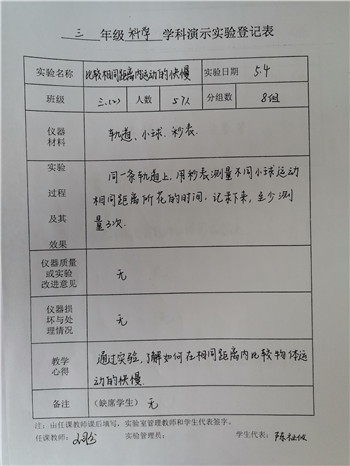 三 年级 科学 学科演示实验登记表
实验名称 比较相同距离内运动的快慢 实验日期 5.4
班级 三.(2) 人数 57人 分组数 8组
仪器
材料
轨道、小球、秒表.
实验
过程
及其
效果
同一条轨道上,用秒表测量不同小球运动
相同距离所花的时间,记录下来,至少测
量3次.
仪器质量
或实验
改进意见
无
仪器损
坏与处
理情况
无
教学
心得
通过实验,了解如何在相同距离内比较物体运
动的快慢.
备注 (缺席学生) 无
注:由任课教师课后填写,实验室管理教师和学生代表签字。
任课教师: 实验管理员: 学生代表: